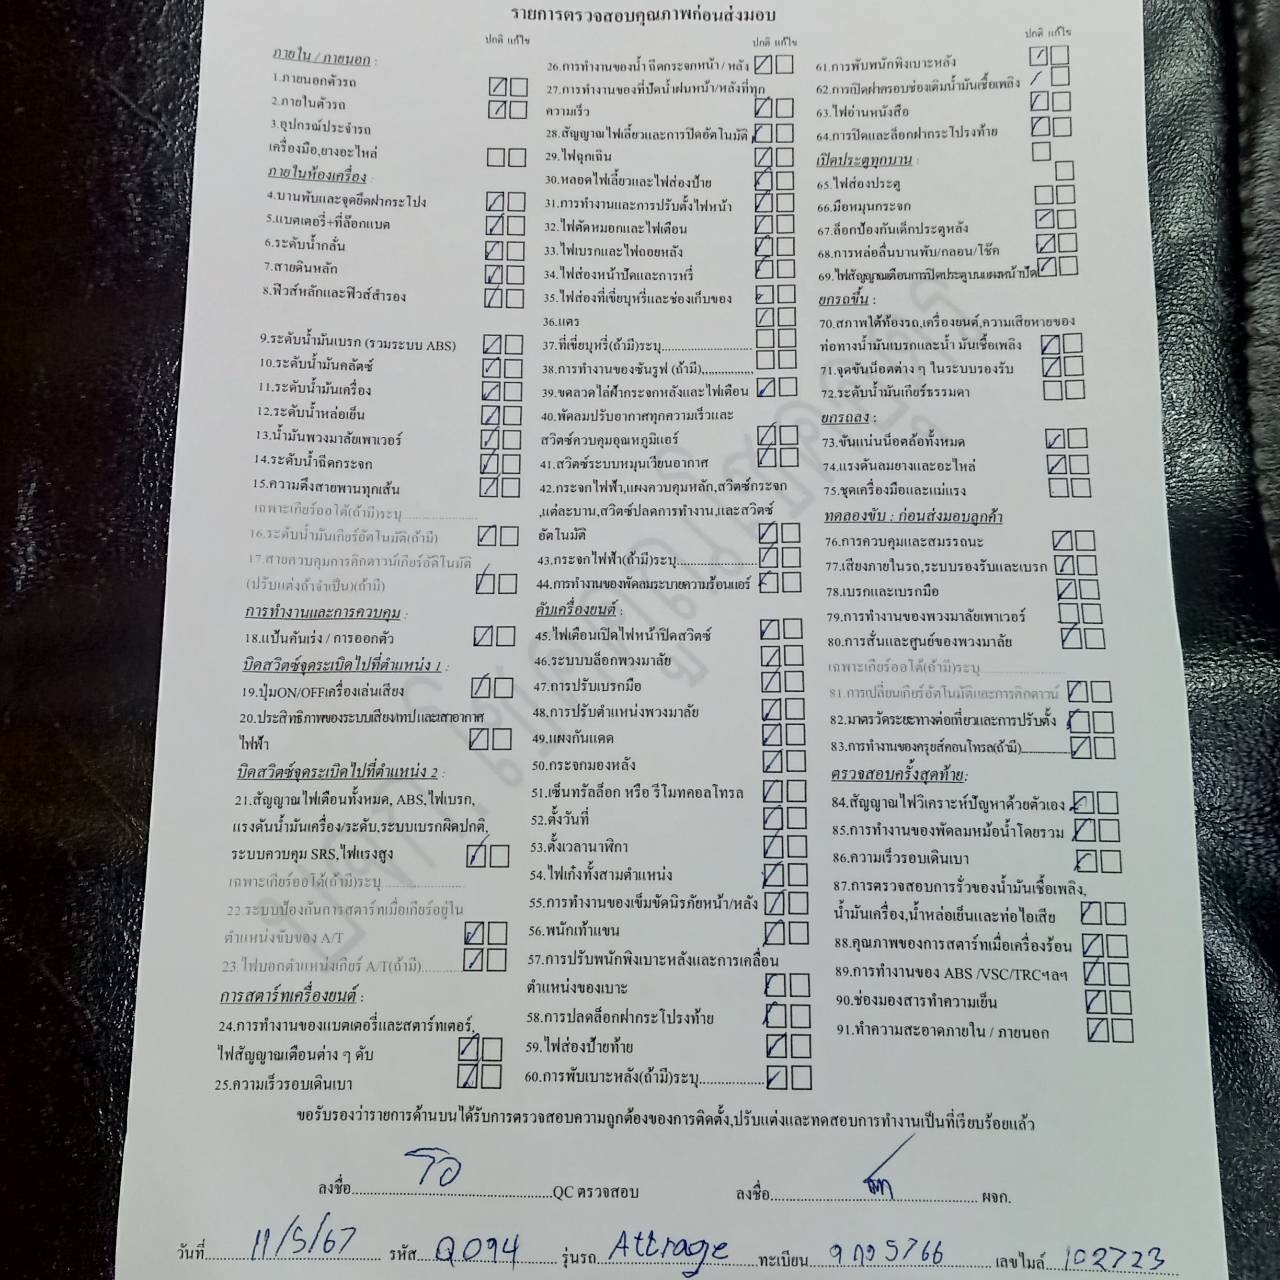 รายการตรวจสอบคุณภาพก่อนส่งมอบ
ปกติ แก้ไข
ภายใน / ภายนอก :
1.ภายนอกตัวรถ
2.ภายในตัวรถ
3.อุปกรณ์ประจำรถ
เครื่องมือ,ยางอะไหล่
ภายในห้องเครื่อง :
4.บานพับและจุดยึดฝากระโปง
5.แบตเตอรี่+ที่ล๊อกแบต
6.ระดับน้ำกลั่น
7.สายดินหลัก
8.ฟิวส์หลักและฟิวส์สำรอง
9.ระดับน้ำมันเบรก (รวมระบบ ABS)
10.ระดับน้ำมันคลัตช์
11.ระดับน้ำมันเครื่อง
12.ระดับน้ำหล่อเย็น
13.น้ำมันพวงมาลัยเพาเวอร์
14.ระดับน้ำฉีดกระจก
15.ความตึงสายพานทุกเส้น
เฉพาะเกียร์ออโต้(ถ้ามี)ระบุ....................
16.ระดับน้ำมันเกียร์อัตโนมัติ(ถ้ามี)
17.สายควบคุมการคิกดาวน์เกียร์อัติโนมัติ
(ปรับแต่งถ้าจำเป็น)(ถ้ามี)
การทำงานและการควบคุม :
18.แป้นคันเร่ง / การออกตัว
บิดสวิตซ์จุดระเบิดไปที่ตำแหน่ง 1 :
19.ปุ่มON/OFFเครื่องเล่นเสียง
20.ประสิทธิภาพของระบบเสียง/เทปและเสาอากาศ
ไฟฟ้า
บิดสวิตซ์จุดระเบิดไปที่ตำแหน่ง 2 :
21.สัญญาณไฟเตือนทั้งหมด, ABS,ไฟเบรก,
แรงดันน้ำมันเครื่อง/ระดับ,ระบบเบรกผิดปกติ,
ระบบควบคุม SRS,ไฟแรงสูง
เฉพาะเกียร์ออโต้(ถ้ามี)ระบุ....................
22.ระบบป้องกันการสตาร์ทเมื่อเกียร์อยู่ใน
ตำแหน่งขับของ A/T
23.ไฟบอกตำแหน่งเกียร์ A/T(ถ้ามี)..............
การสตาร์ทเครื่องยนต์ :
24.การทำงานของแบตเตอรี่และสตาร์ทเตอร์,
ไฟสัญญาณเตือนต่าง ๆ ดับ
25.ความเร็วรอบเดินเบา
ปกติ แก้ไข
26.การทำงานของน้ำ ฉีดกระจกหน้า / หลัง
27.การทำงานของที่ปัดน้ำฝนหน้า/หลังที่ทุก
ความเร็ว
28.สัญญาณไฟเลี้ยวและการปิดอัตโนมัติ
29.ไฟฉุกเฉิน
30.หลอดไฟเลี้ยวและไฟส่องป้าย
31.การทำงานและการปรับตั้งไฟหน้า
32.ไฟตัดหมอกและไฟเตือน
33.ไฟเบรกและไฟถอยหลัง
34.ไฟส่องหน้าปัดและการหรี่
35.ไฟส่องที่เขี่ยบุหรี่และช่องเก็บของ
36.แตร
37.ที่เขี่ยบุหรี่(ถ้ามี)ระบุ.........................
38.การทำงานของซันรูฟ (ถ้ามี)................
39.ขดลวดไล่ฝ้ากระจกหลังและไฟเตือน
40.พัดลมปรับอากาศทุกความเร็วและ
สวิตซ์ควบคุมอุณหภูมิแอร์
41.สวิตซ์ระบบหมุนเวียนอากาศ
42.กระจกไฟฟ้า,แผงควบคุมหลัก,สวิตซ์กระจก
,แต่ละบาน,สวิตซ์ปลดการทำงาน,และสวิตซ์
อัตโนมัติ
43.กระจกไฟฟ้า(ถ้ามี)ระบุ....................
44.การทำงานของพัดลมระบายความร้อนแอร์
ดับเครื่องยนต์ :
45.ไฟเตือนเปิดไฟหน้าปิดสวิตซ์
46.ระบบบล็อกพวงมาลัย
47.การปรับเบรกมือ
48.การปรับตำแหน่งพวงมาลัย
49.แผงกันแดด
50.กระจกมองหลัง
51.เซ็นทรัลล็อก หรือ รีโมทคอลโทรล
52.ตั้งวันที่
53.ตั้งเวลานาฬิกา
54.ไฟเก๋งทั้งสามตำแหน่ง
55.การทำงานของเข็มขัดนิรภัยหน้า/หลัง
56.พนักเท้าแขน
57.การปรับพนักพิงเบาะหลังและการเคลื่อน
ตำแหน่งของเบาะ
58.การปลดล็อกฝากระโปรงท้าย
59.ไฟส่องป้ายท้าย
60.การพับเบาะหลัง(ถ้ามี)ระบุ....................
ปกติ แก้ไข
61.การพับพนักพิงเบาะหลัง
62.การปิดฝาครอบช่องเติมน้ำมันเชื้อเพลิง
63.ไฟอ่านหนังสือ
64.การปิดและล็อกฝากระโปรงท้าย
เปิดประตูทุกบาน :
65.ไฟส่องประตู
66.มือหมุนกระจก
67.ล็อกป้องกันเด็กประตูหลัง
68.การหล่อลื่นบานพับ/กลอน/โช๊ค
69.ไฟสัญญาณเตือนการปิดประตูบนแผงหน้าปัด
ยกรถขึ้น :
70.สภาพใต้ท้องรถ,เครื่องยนต์,ความเสียหายของ
ท่อทางน้ำมันเบรกและน้ำ มันเชื้อเพลิง
71.จุดขันน็อตต่าง ๆ ในระบบรองรับ
72.ระดับน้ำมันเกียร์ธรรมดา
ยกรถลง :
73.ขันแน่นน็อตล้อทั้งหมด
74.แรงดันลมยางและอะไหล่
75.ชุดเครื่องมือและแม่แรง
ทดลองขับ : ก่อนส่งมอบลูกค้า
76.การควบคุมและสมรรถนะ
77.เสียงภายในรถ,ระบบรองรับและเบรก
78.เบรกและเบรกมือ
79.การทำงานของพวงมาลัยเพาเวอร์
80.การสั่นและศูนย์ของพวงมาลัย
เฉพาะเกียร์ออโต้(ถ้ามี)ระบุ....................
81.การเปลี่ยนเกียร์อัตโนมัติและการคิกดาวน์
82.มาตรวัดระยะทางต่อเที่ยวและการปรับตั้ง
83.การทำงานของครุยส์คอนโทรล(ถ้ามี)..............
ตรวจสอบครั้งสุดท้าย:
84.สัญญาณไฟวิเคราะห์ปัญหาด้วยตัวเอง
85.การทำงานของพัดลมหม้อน้ำโดยรวม
86.ความเร็วรอบเดินเบา
87.การตรวจสอบการรั่วของน้ำมันเชื้อเพลิง,
น้ำมันเครื่อง,น้ำหล่อเย็นและท่อไอเสีย
88.คุณภาพของการสตาร์ทเมื่อเครื่องร้อน
89.การทำงานของ ABS /VSC/TRCฯลฯ
90.ช่องมองสารทำความเย็น
91.ทำความสะอาดภายใน / ภายนอก
ขอรับรองว่ารายการด้านบนได้รับการตรวจสอบความถูกต้องของการติดตั้ง,ปรับแต่งและทดสอบการทำงานเป็นที่เรียบร้อยแล้ว
ลงชื่อ..............................QC ตรวจสอบ ลงชื่อ.............................. ผจก.
วันที่ 11/5/67 รหัส Q094 รุ่นรถ Attrage ทะเบียน 9กว5766 เลขไมล์ 102723